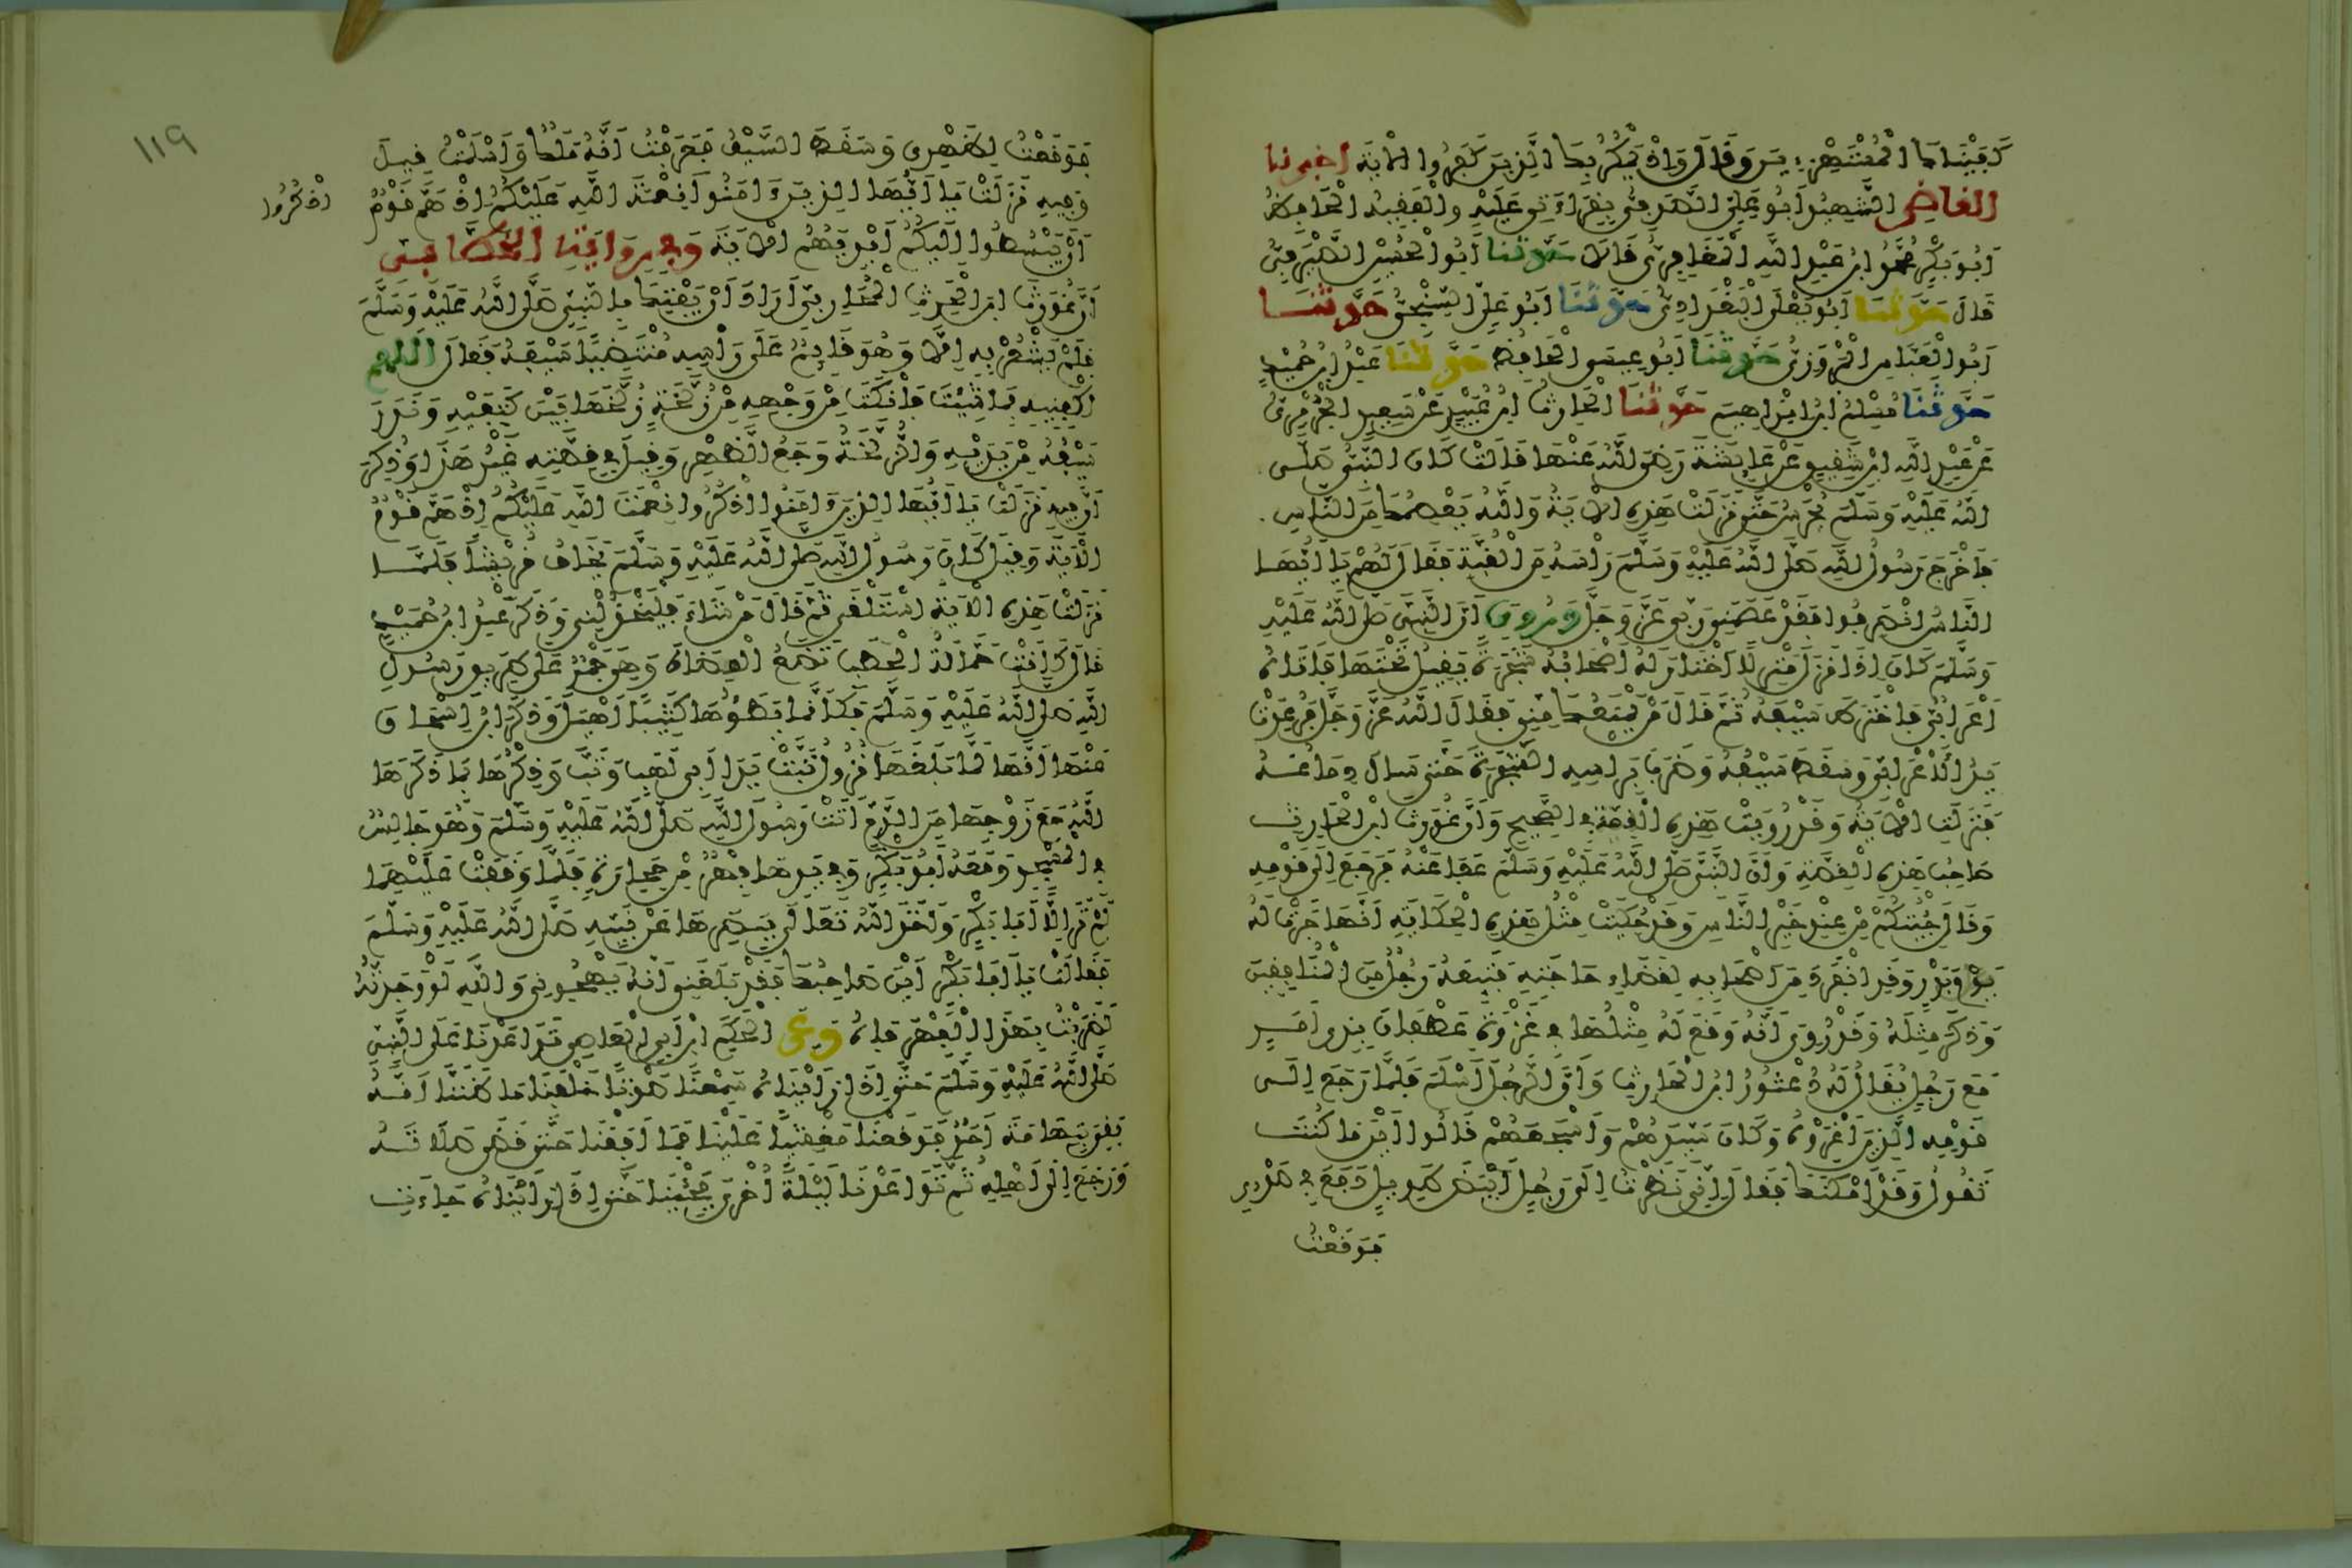 كَفَيْنَاكَ الْمُسْتَهْزِءِينَ وَقَالَ وَإِذْ يَمْكُرُ بِكَ الَّذِينَ كَفَرُوا الْآيَةَ اخبرنا
القاضي الشَّهِيدُ أَبُو عَلِيٍّ الصَّدَفِيُّ بِقِرَاءَتِي عَلَيْهِ وَالْفَقِيهُ الْحَافِظُ
أَبُو بَكْرٍ مُحَمَّدُ ابْنُ عَبْدِ اللَّهِ الْمَعَافِرِيُّ قَالَا حَدَّثَنَا أَبُو الْحُسَيْنِ الصَّيْرَفِيُّ
قَالَ حَدَّثَنَا أَبُو يَعْلَى الْبَغْدَادِيُّ حَدَّثَنَا أَبُو عَلِيٍّ السِّنْجِيُّ حَدَّثَنَا
أَبُو الْعَبَّاسِ الْمَرْوَزِيُّ حَدَّثَنَا أَبُو عِيسَى الْحَافِظُ حَدَّثَنَا عَبْدُ ابْنُ حُمَيْدٍ
حَدَّثَنَا مُسْلِمُ ابْنُ إِبْرَاهِيمَ حَدَّثَنَا الْحَارِثُ ابْنُ عُبَيْدٍ عَنْ سَعِيدٍ الْجُرَيْرِيِّ
عَنْ عَبْدِ اللَّهِ ابْنِ شَقِيقٍ عَنْ عَائِشَةَ رَضِيَ اللَّهُ عَنْهَا قَالَتْ كَانَ النَّبِيُّ صَلَّى
اللَّهُ عَلَيْهِ وَسَلَّمَ يُحْرَسُ حَتَّى نَزَلَتْ هَذِهِ الْآيَةُ وَاللَّهُ يَعْصِمُكَ مِنَ النَّاسِ
فَأَخْرَجَ رَسُولُ اللَّهِ صَلَّى اللَّهُ عَلَيْهِ وَسَلَّمَ رَأْسَهُ مِنَ الْقُبَّةِ فَقَالَ لَهُمْ يَا أَيُّهَا
النَّاسُ انْصَرِفُوا فَقَدْ عَصَمَنِي رَبِّي عَزَّ وَجَلَّ وَرُوِيَ أَنَّ النَّبِيَّ صَلَّى اللَّهُ عَلَيْهِ
وَسَلَّمَ كَانَ إِذَا نَزَلَ مَنْزِلًا اخْتَارَ لَهُ أَصْحَابُهُ شَجَرَةً يَقِيلُ تَحْتَهَا فَأَتَاهُ
أَعْرَابِيٌّ فَاخْتَرَطَ سَيْفَهُ ثُمَّ قَالَ مَنْ يَمْنَعُكَ مِنِّي فَقَالَ اللَّهُ عَزَّ وَجَلَّ فَرُعِدَتْ
يَدُ الْأَعْرَابِيِّ وَسَقَطَ سَيْفُهُ وَضَرَبَ بِرَأْسِهِ الشَّجَرَةَ حَتَّى سَالَ دِمَاغُهُ
فَنَزَلَتِ الْآيَةُ وَقَدْ رُوِيَتْ هَذِهِ الْقِصَّةُ فِي الصَّحِيحِ وَأَنَّ غَوْرَثَ ابْنَ الْحَارِثِ
صَاحِبُ هَذِهِ الْقِصَّةِ وَأَنَّ النَّبِيَّ صَلَّى اللَّهُ عَلَيْهِ وَسَلَّمَ عَفَا عَنْهُ فَرَجَعَ إِلَى قَوْمِهِ
وَقَالَ جِئْتُكُمْ مِنْ عِنْدِ خَيْرِ النَّاسِ وَقَدْ حُكِيَتْ مِثْلُ هَذِهِ الْحِكَايَةِ أَنَّهَا جَرَتْ لَهُ
يَوْمَ بَدْرٍ وَقَدِ انْفَرَدَ مِنْ أَصْحَابِهِ لِقَضَاءِ حَاجَتِهِ فَتَبِعَهُ رَجُلٌ مِنَ الْمُنَافِقِينَ
وَذَكَرَ مِثْلَهُ وَقَدْ رُوِيَ أَنَّهُ وَقَعَ لَهُ مِثْلُهَا فِي غَزْوَةِ غَطَفَانَ بِذِي أَمَرٍ
مَعَ رَجُلٍ يُقَالُ لَهُ دُعْثُورُ ابْنُ الْحَارِثِ وَأَنَّ الرَّجُلَ أَسْلَمَ فَلَمَّا رَجَعَ إِلَى
قَوْمِهِ الَّذِينَ أَغْرَوْهُ وَكَانَ سَيِّدَهُمْ وَأَشْجَعَهُمْ قَالُوا أَيْنَ مَا كُنْتَ
تَقُولُ وَقَدْ أَمْكَنَكَ فَقَالَ إِنِّي نَظَرْتُ إِلَى رَجُلٍ أَبْيَضَ طَوِيلٍ دَفَعَ فِي صَدْرِي
فَوَقَعْتُ
١١٩
فَوَقَعْتُ لِظَهْرِي وَسَقَطَ السَّيْفُ فَعَرَفْتُ أَنَّهُ مَلَكٌ وَأَسْلَمْتُ قِيلَ
وَفِيهِ نَزَلَتْ يَا أَيُّهَا الَّذِينَ ءَامَنُوا نِعْمَتَ اللَّهِ عَلَيْكُمْ إِذْ هَمَّ قَوْمٌ
اذْكُرُوا
أَنْ يَبْسُطُوا إِلَيْكُمْ أَيْدِيَهُمْ الْآيَةَ وَفِي رِوَايَةِ الْخَطَّابِيِّ
أَنَّ غَوْرَثَ ابْنَ الْحَرِثِ الْمُحَارِبِيَّ أَرَادَ أَنْ يَفْتِكَ بِالنَّبِيِّ صَلَّى اللَّهُ عَلَيْهِ وَسَلَّمَ
فَلَمْ يَشْعُرْ بِهِ إِلَّا وَهُوَ قَائِمٌ عَلَى رَأْسِهِ مُنْتَضِيًا سَيْفَهُ فَقَالَ اللهم
اكْفِنِيهِ بِمَا شِئْتَ فَانْكَبَّ مِنْ وَجْهِهِ مِنْ زُلَّخَةٍ زُلِّخَهَا بَيْنَ كَتِفَيْهِ وَنَدَرَ
سَيْفُهُ مِنْ يَدَيْهِ وَالزُّلَّخَةُ وَجَعُ الظَّهْرِ وَقِيلَ فِي قِصَّتِهِ غَيْرُ هَذَا وَذُكِرَ
أَنَّ فِيهِ نَزَلَتْ يَا أَيُّهَا الَّذِينَ ءَامَنُوا اذْكُرُوا نِعْمَتَ اللَّهِ عَلَيْكُمْ إِذْ هَمَّ قَوْمٌ
الْآيَةَ وَقِيلَ كَانَ رَسُولُ اللَّهِ صَلَّى اللَّهُ عَلَيْهِ وَسَلَّمَ يَخَافُ قُرَيْشًا فَلَمَّا
نَزَلَتْ هَذِهِ الْآيَةُ اسْتَلْقَى ثُمَّ قَالَ مَنْ شَاءَ فَلْيَخْذُلْنِي وَذَكَرَ عَبْدُ ابْنُ حُمَيْدٍ
قَالَ كَانَتْ حَمَّالَةُ الْحَطَبِ تَضَعُ الْعِضَاهَ وَهِيَ جَمْرٌ عَلَى طَرِيقِ رَسُولِ
اللَّهِ صَلَّى اللَّهُ عَلَيْهِ وَسَلَّمَ فَكَأَنَّمَا يَطَؤُهَا كَثِيبًا أَهْيَلَ وَذَكَرَ ابْنُ إِسْحَاقَ
عَنْهَا أَنَّهَا لَمَّا بَلَغَهَا نُزُولُ تَبَّتْ يَدَا أَبِي لَهَبٍ وَتَبَّ وَذِكْرُهَا بِمَا ذَكَرَهَا
اللَّهُ مَعَ زَوْجِهَا مِنَ الذَّمِّ أَتَتْ رَسُولَ اللَّهِ صَلَّى اللَّهُ عَلَيْهِ وَسَلَّمَ وَهُوَ جَالِسٌ
فِي الْمَسْجِدِ وَمَعَهُ أَبُو بَكْرٍ وَفِي يَدِهَا فِهْرٌ مِنْ حِجَارَةٍ فَلَمَّا وَقَفَتْ عَلَيْهِمَا
لَمْ تَرَ إِلَّا أَبَا بَكْرٍ وَأَخَذَ اللَّهُ تَعَالَى بِبَصَرِهَا عَنْ نَبِيِّهِ صَلَّى اللَّهُ عَلَيْهِ وَسَلَّمَ
فَقَالَتْ يَا أَبَا بَكْرٍ أَيْنَ صَاحِبُكَ فَقَدْ بَلَغَنِي أَنَّهُ يَهْجُونِي وَاللَّهِ لَوْ وَجَدْتُهُ
لَضَرَبْتُ بِهَذَا الْفِهْرِ فَاهُ وَعَنِ الْحَكَمِ ابْنِ أَبِي الْعَاصِ تَوَاعَدْنَا عَلَى النَّبِيِّ
صَلَّى اللَّهُ عَلَيْهِ وَسَلَّمَ حَتَّى إِذَا رَأَيْنَاهُ سَمِعْنَا صَوْتًا خَلْفَنَا مَا ظَنَنَّا أَنَّهُ
بَقِيَ بِتِهَامَةَ أَحَدٌ فَوَقَعْنَا مَغْشِيًّا عَلَيْنَا فَمَا أَفَقْنَا حَتَّى قَضَى صَلَاتَهُ
وَرَجَعَ إِلَى أَهْلِهِ ثُمَّ تَوَاعَدْنَا لَيْلَةً أُخْرَى فَجِئْنَا حَتَّى إِذَا رَأَيْنَاهُ جَاءَتِ